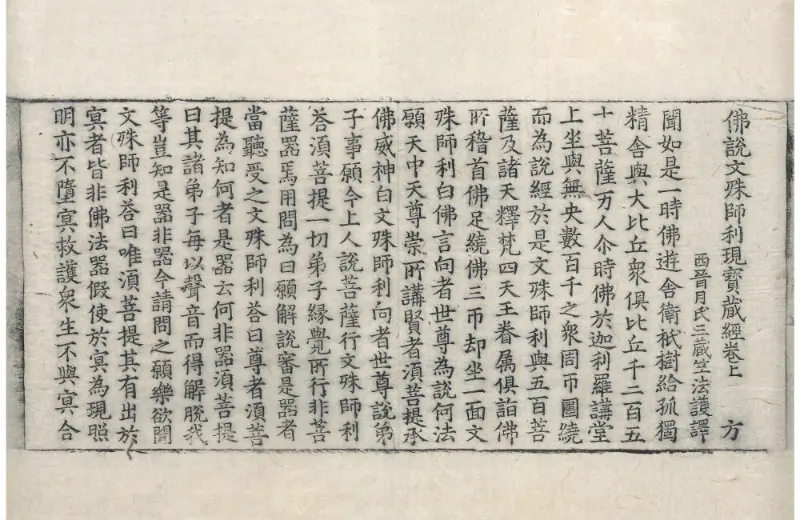 佛說文殊師利現寶藏經卷上 方
西晉月氏三藏竺法護譯
聞如是一時佛遊舍衛祇樹給孤獨
精舍與大比丘衆俱比丘千二百五
十菩薩万人尒時佛於迦利羅講堂
上坐與無央數百千之衆周帀圍繞
而為說經於是文殊師利與五百菩
薩及諸天釋梵四天王眷属俱詣佛
所稽首佛足繞佛三帀却坐一面文
殊師利白佛言向者世尊為說何法
願天中天尊崇所講賢者湏菩提承
佛威神白文殊師利向者世尊說弟
子事願今上人說菩薩行文殊師利
荅湏菩提一切弟子縁覺所行非菩
薩器焉用問為曰願解說審是器者
當聽受之文殊師利荅曰尊者湏菩
提為知何者是器云何非器湏菩提
曰其諸弟子每以聲音而得解脫我
等豈知是器非器今請問之願樂欲聞
文殊師利荅曰唯湏菩提其有出於
冥者皆非佛法器假使於冥為現照
明亦不墮冥救護衆生不與冥合